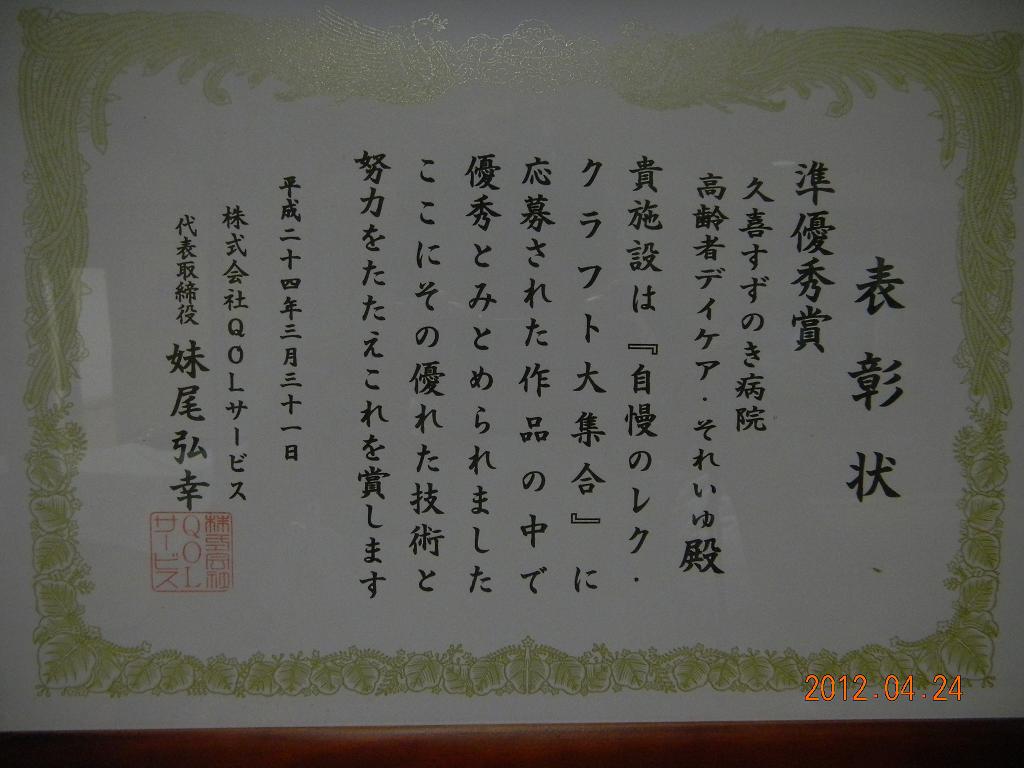 表彰状
準優秀賞
久喜すずのき病院
高齢者デイケア・それいゆ殿
貴施設は『自慢のレク・
クラフト大集合』に
応募された作品の中で
優秀とみとめられました
ここにその優れた技術と
努力をたたえこれを賞します
平成二十四年三月三十一日
株式会社QOLサービス
代表取締役 妹尾弘幸
株式会社
QOL
サービス
2012.04.24